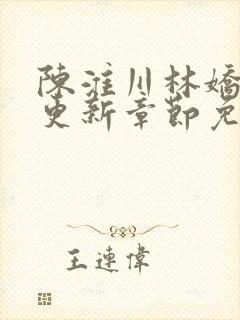 陳淮川林嬌
更新章節免
王連偉